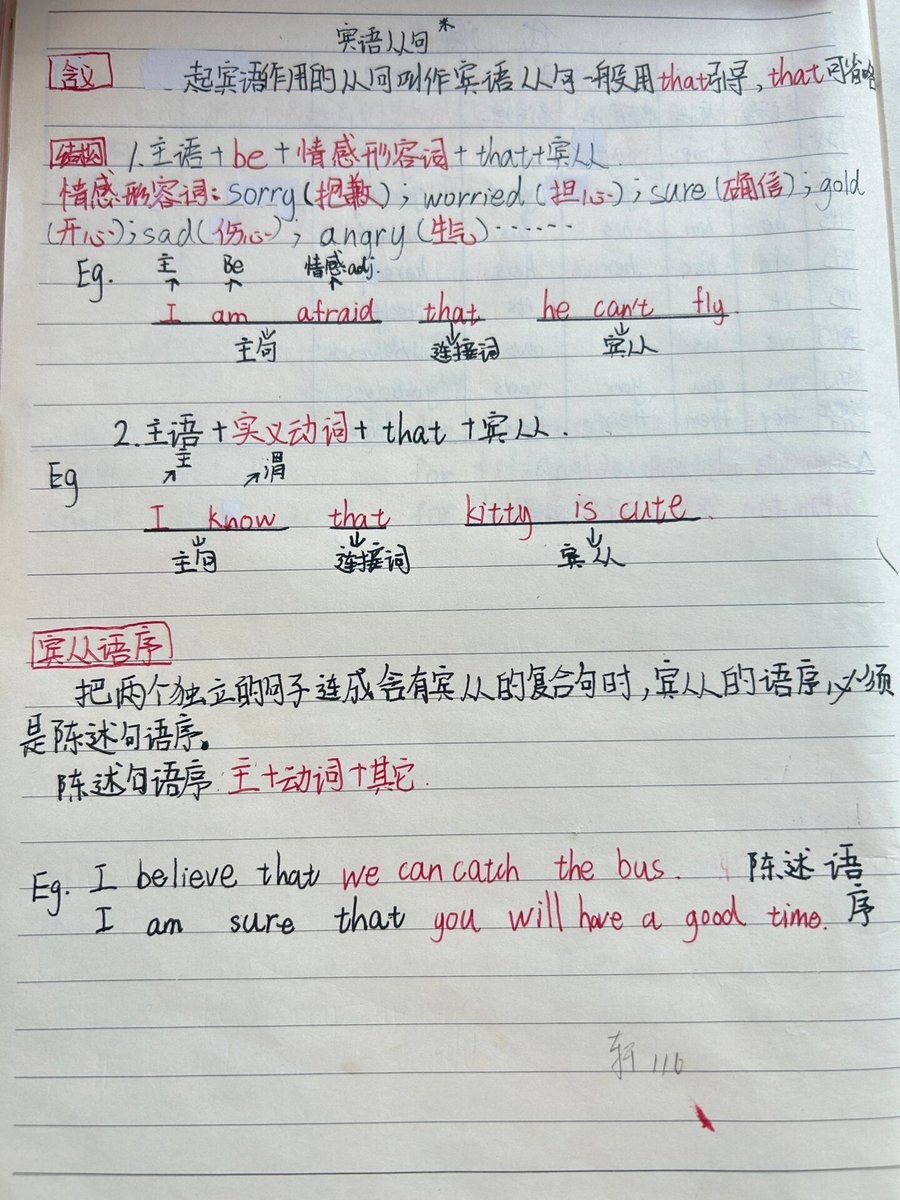 宾语从句*
含义 起宾语作用的从句叫作宾语从句一般用that引导,that可省略
结构 1.主语+be+情感形容词+that+宾从.
情感形容词: sorry(抱歉); worried(担心); sure(确信); gold
(开心); sad(伤心); angry(生气)······
Eg. 主 Be 情感adj.
I am afraid that he can't fly.
主句 连接词 宾从
2.主语+实义动词+that+宾从.
Eg 主 谓
I know that kitty is cute.
主句 连接词 宾从
宾从语序
把两个独立的句子连成含有宾从的复合句时,宾从的语序必须
是陈述句语序。
陈述句语序:主+动词+其它.
Eg. I believe that we can catch the bus. 陈述语
I am sure that you will have a good time. 序
轩 116